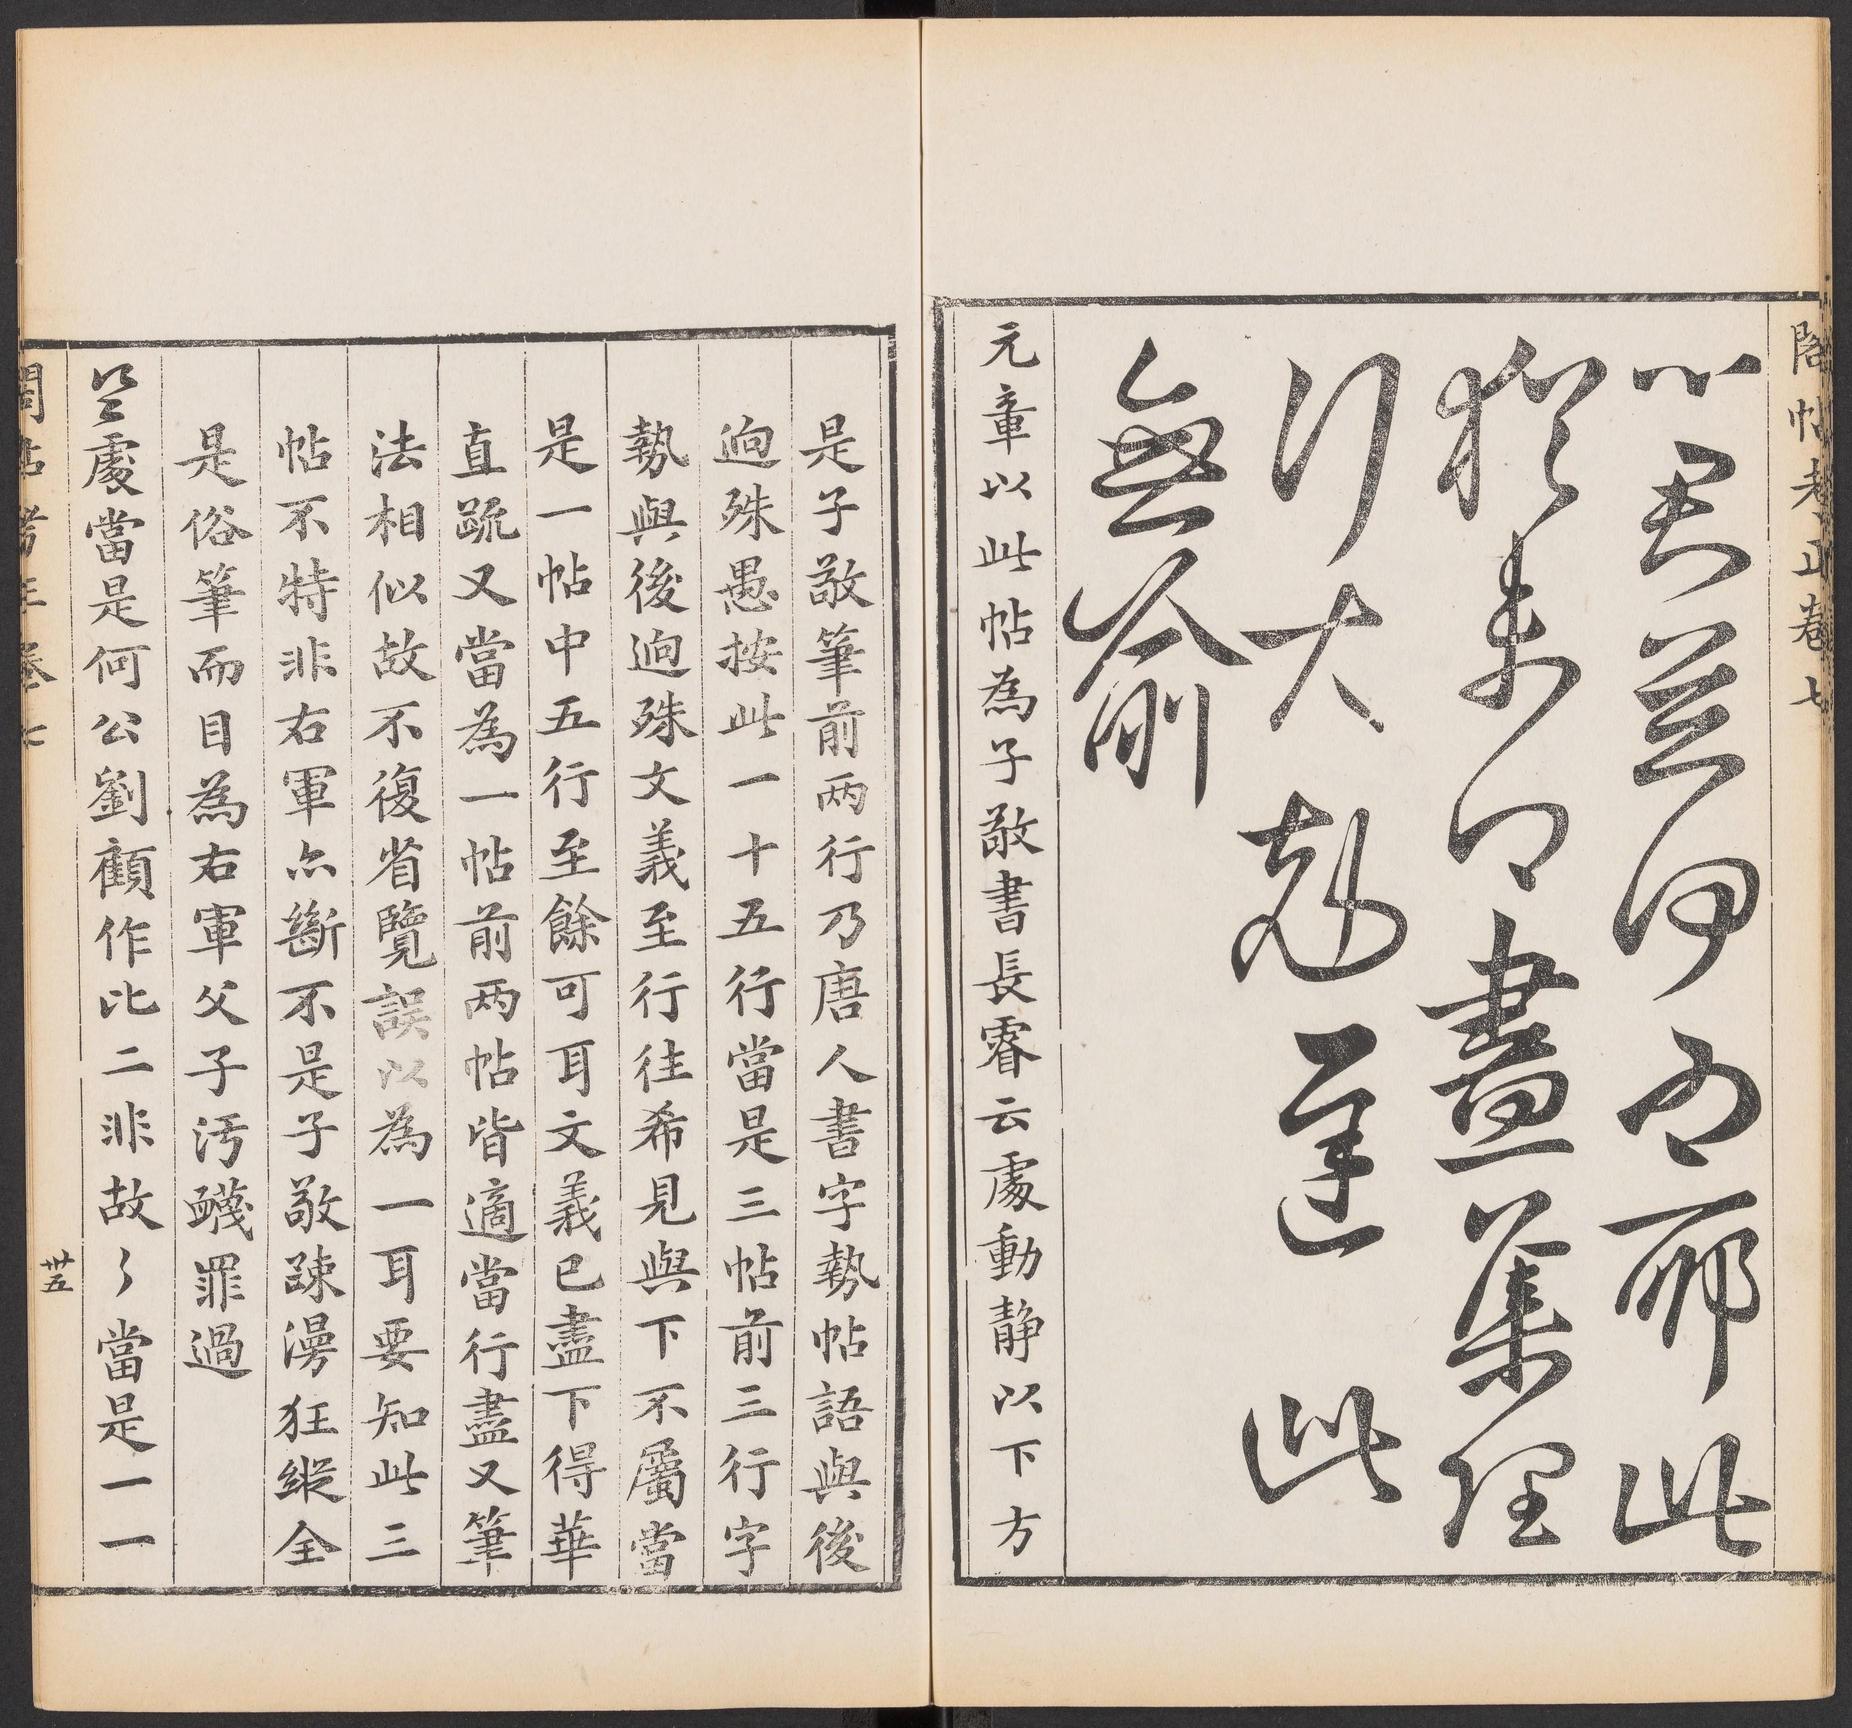 閣帖考正卷七
不
此
猶未
盡集理
行大剋
此
無喻
元章以此帖為子敬書長睿云處動静以下方
是子敬筆前两行乃唐人書字勢帖語與後
逈殊愚按此一十五行當是三帖前三行字
勢與後逈殊文義至行往希見與下不屬當
是一帖中五行至餘可耳文義已盡下得華
直疏又當為一帖前两帖皆適當行盡又筆
法相似故不復省覽誤以為一耳要知此三
帖不特非右軍亦斷不是子敬踈漫狂縱全
是俗筆而目為右軍父子汚衊罪過
處當是何公劉顧作比二非故〻當是一一
閣帖考正卷七
卅五